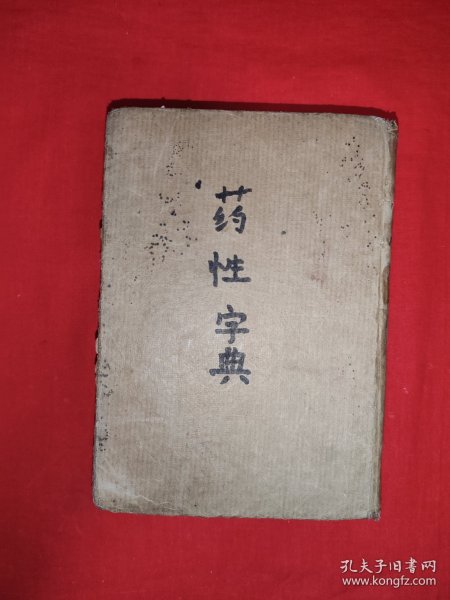 药性字典
孔夫子旧书网
www.kongfz.com